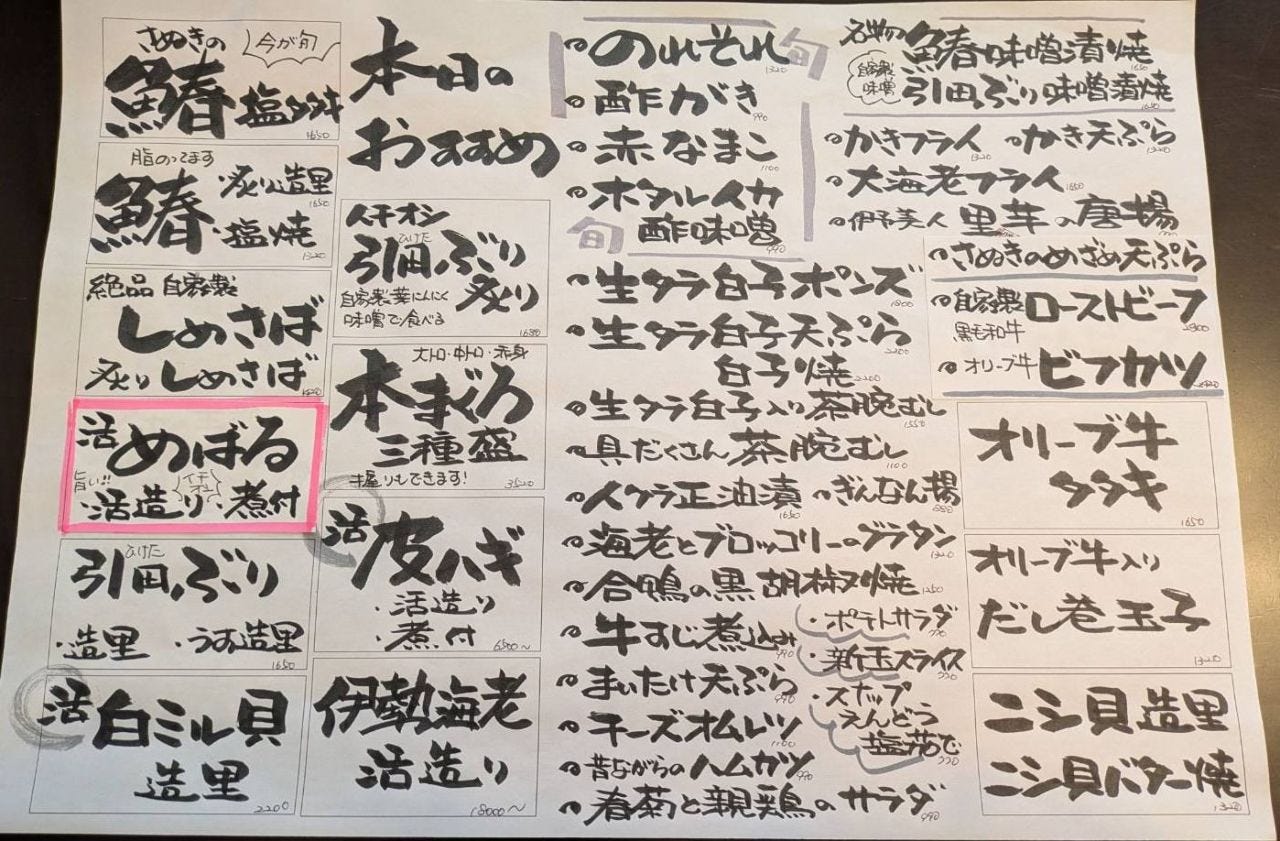 本日の
おすすめ
さぬきの
今が旬
鰆塩タタキ
1650
脂のってます
鰆
・炙り造里
1650
・塩焼
1320
絶品 自家製
しめさば
炙りしめさば
活めばる
旨い!!
イチオシ
・活造り ・煮付
ひけた
引田ぶり
・造里 ・うす造里
1650
活白ミル貝
造里
2200
イチオシ
ひけた
引田ぶり
自家製葉にんにく
味噌で食べる
炙り
1650
大トロ・中トロ・赤身
本まぐろ
三種盛
握りもできます!
3520
活皮ハギ
・活造り
・煮付
6500〜
伊勢海老
活造り
18000〜
のれそれ
1320
旬
酢がき
990
赤なまこ
1100
ホタルイカ
酢味噌
990
旬
生タラ白子ポンズ
生タラ白子天ぷら
2200
白子焼
2200
生タラ白子入り茶腕むし
1550
具だくさん茶腕むし
1100
イクラ正油漬
1650
ぎんなん揚
880
海老とブロッコリーのグラタン
1320
合鴨の黒胡椒焼
1250
牛すじ煮込み
990
まいたけ天ぷら
990
チーズオムレツ
1100
昔ながらのハムカツ
990
春菊と親鶏のサラダ
990
・ポテトサラダ
770
・新玉スライス
770
・スナップ
えんどう
塩茹で
770
名物の
自家製
味噌
鰆味噌漬焼
1650
引田ぶり味噌漬焼
1650
かきフライ
1320
かき天ぷら
1320
大海老フライ
1650
伊予美人 里芋の唐揚
さぬきのめざめ天ぷら
自家製
黒毛和牛
ローストビーフ
オリーブ牛 ビフカツ
オリーブ牛
タタキ
1650
オリーブ牛入り
だし巻玉子
1320
ニシ貝造里
ニシ貝バター焼
1320